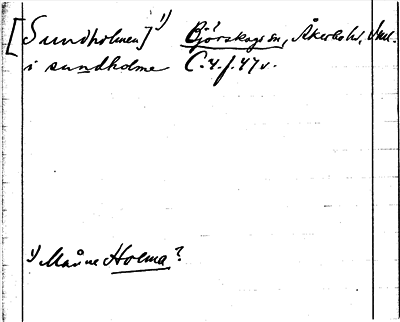 [Sundholmen] 1) Björskogs sn, Åkerbo hd, Vml.
i sundholme C. 4. f. 47 v.
1) Månne Holma?